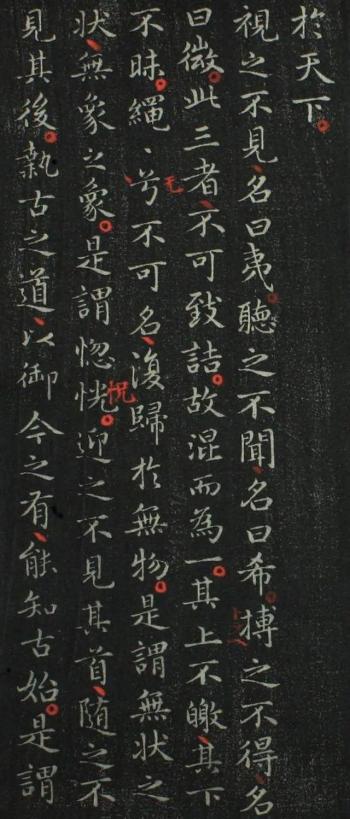 於天下
視之不見名曰夷聽之不聞名曰希搏之不得名
曰微此三者不可致詰故混而為一其上不皦其下
不昧繩〻兮不可名復歸於無物是謂無狀之
狀無象之象是謂惚恍迎之不見其首隨之不
見其後執古之道以御今之有能知古始是謂